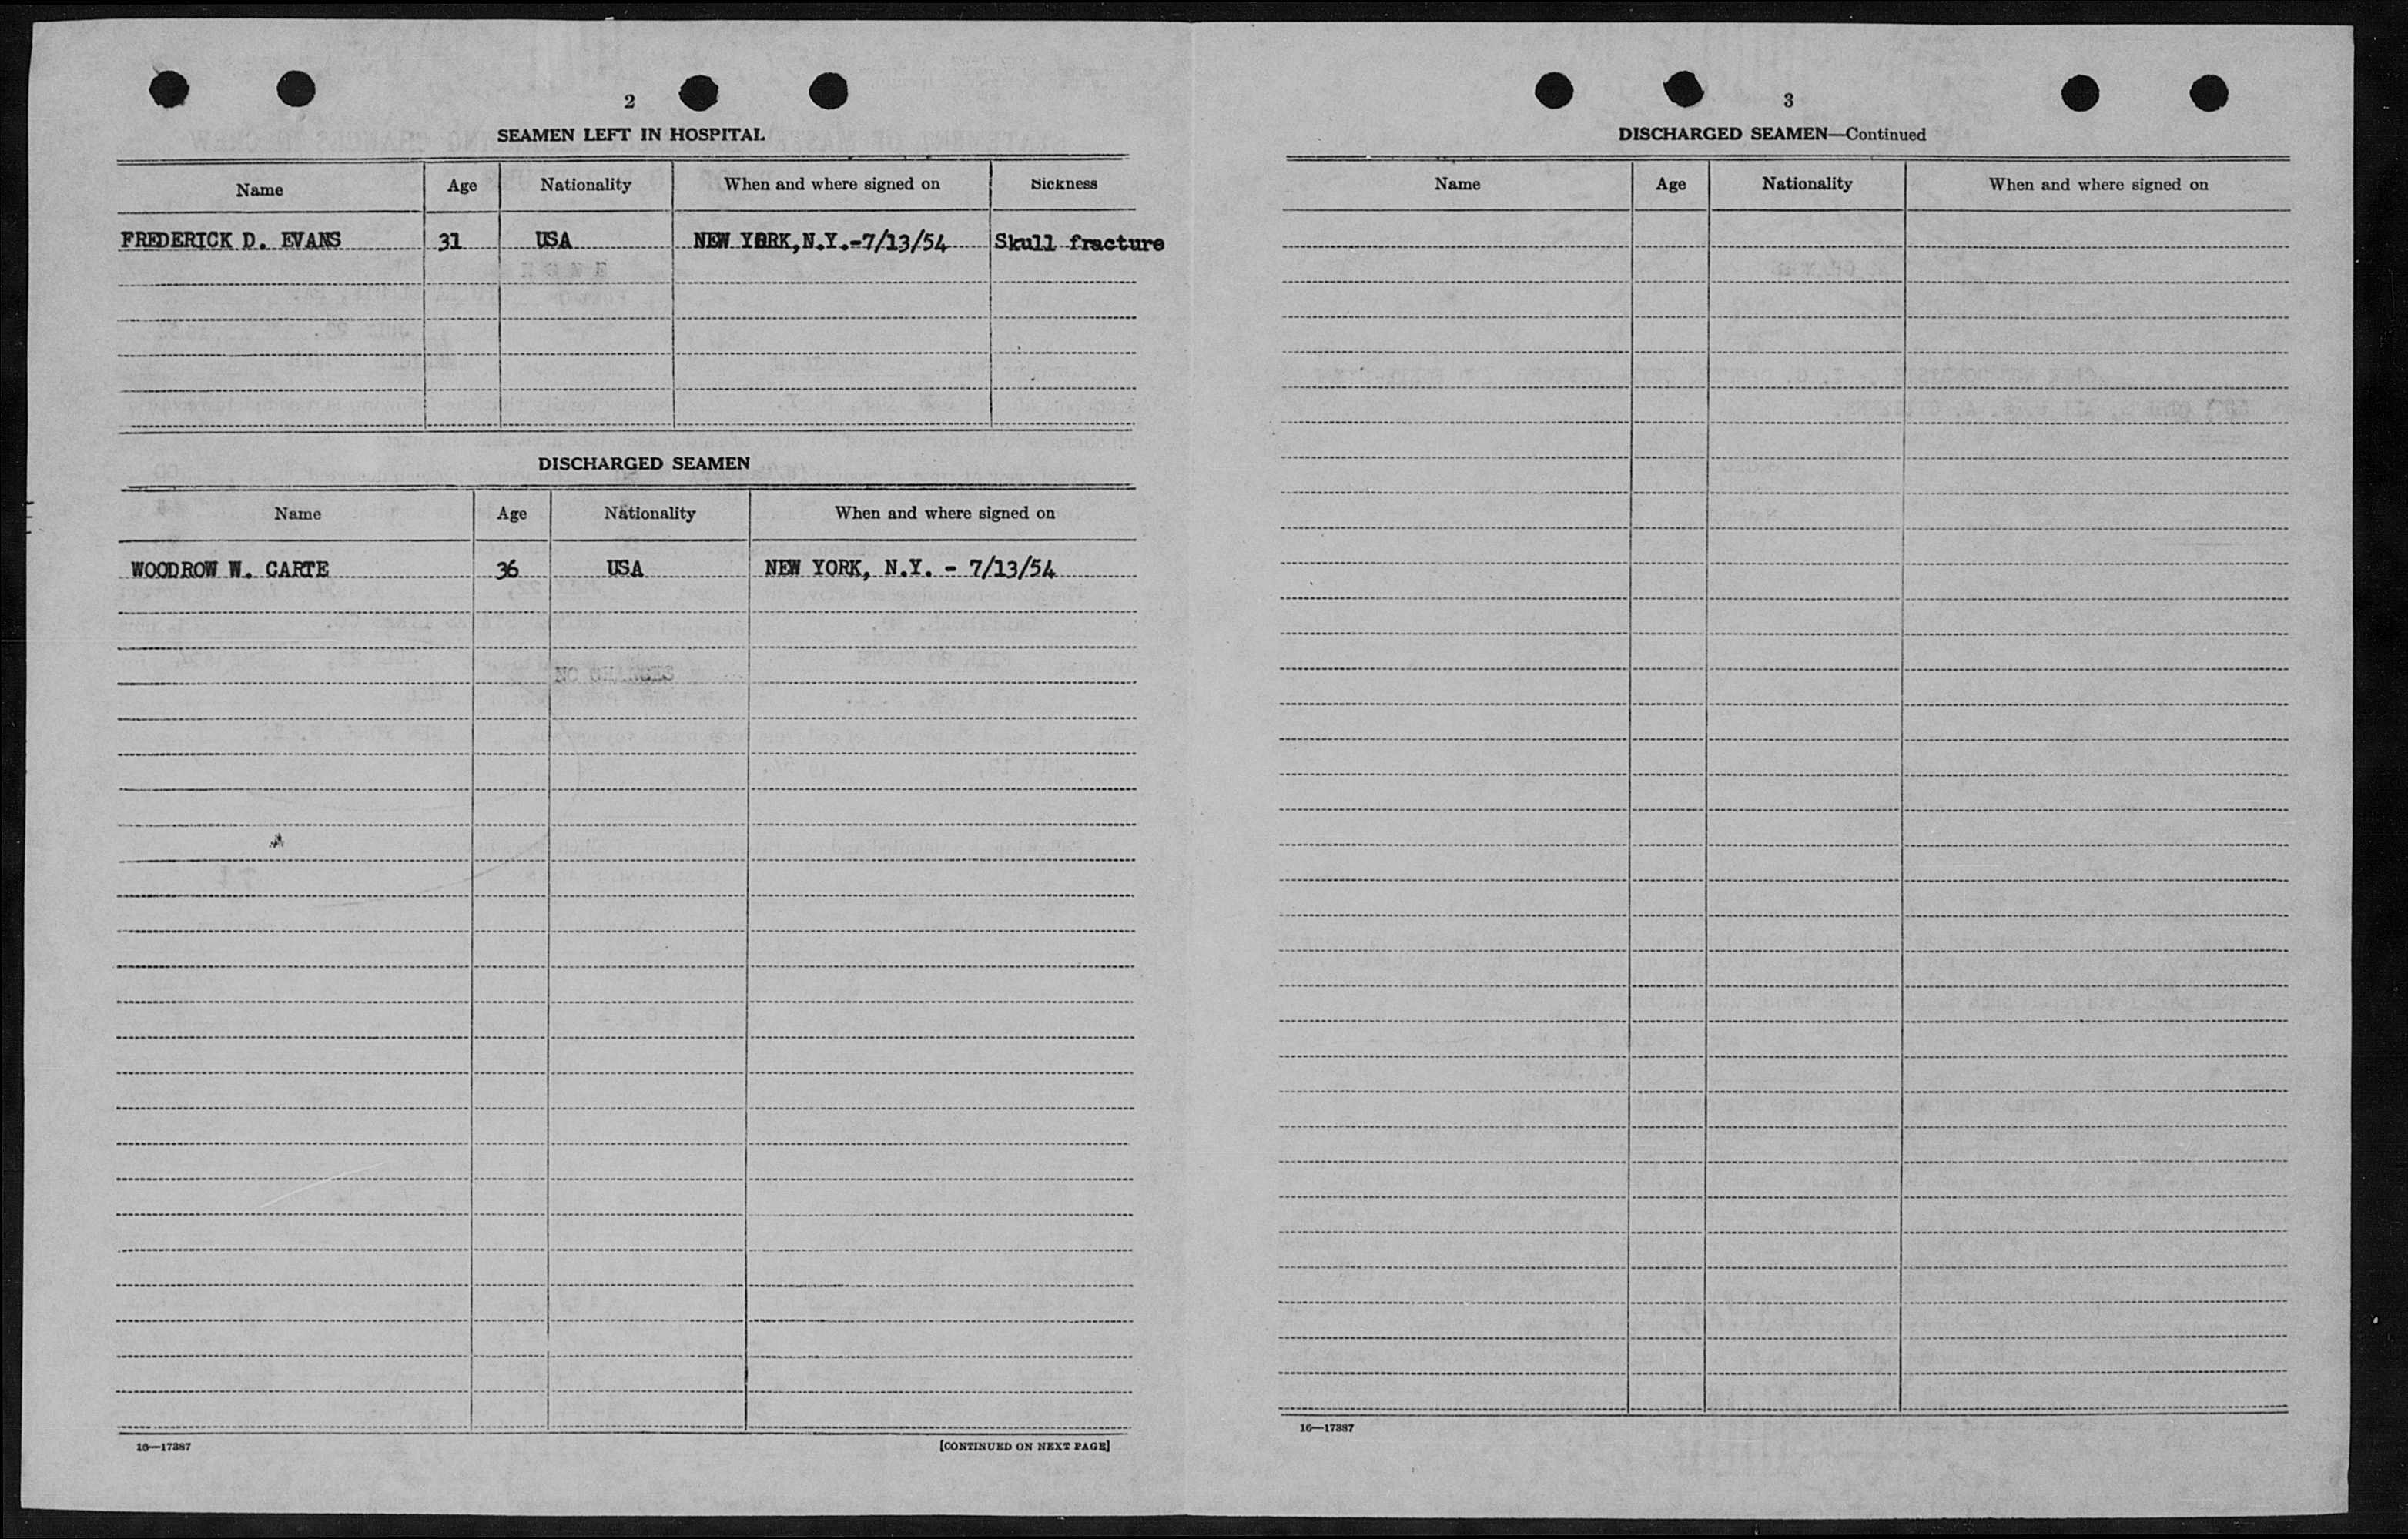 2
SEAMEN LEFT IN HOSPITAL
Name Age Nationality When and where signed on Sickness
FREDERICK D. EVANS 31 USA NEW YORK,N.Y.-7/13/54 Skull fracture
DISCHARGED SEAMEN
Name Age Nationality When and where signed on
WOODROW W. CARTE 36 USA NEW YORK, N.Y. - 7/13/54
16—17387 [CONTINUED ON NEXT PAGE]
3
DISCHARGED SEAMEN—Continued
Name Age Nationality When and where signed on
16—17387